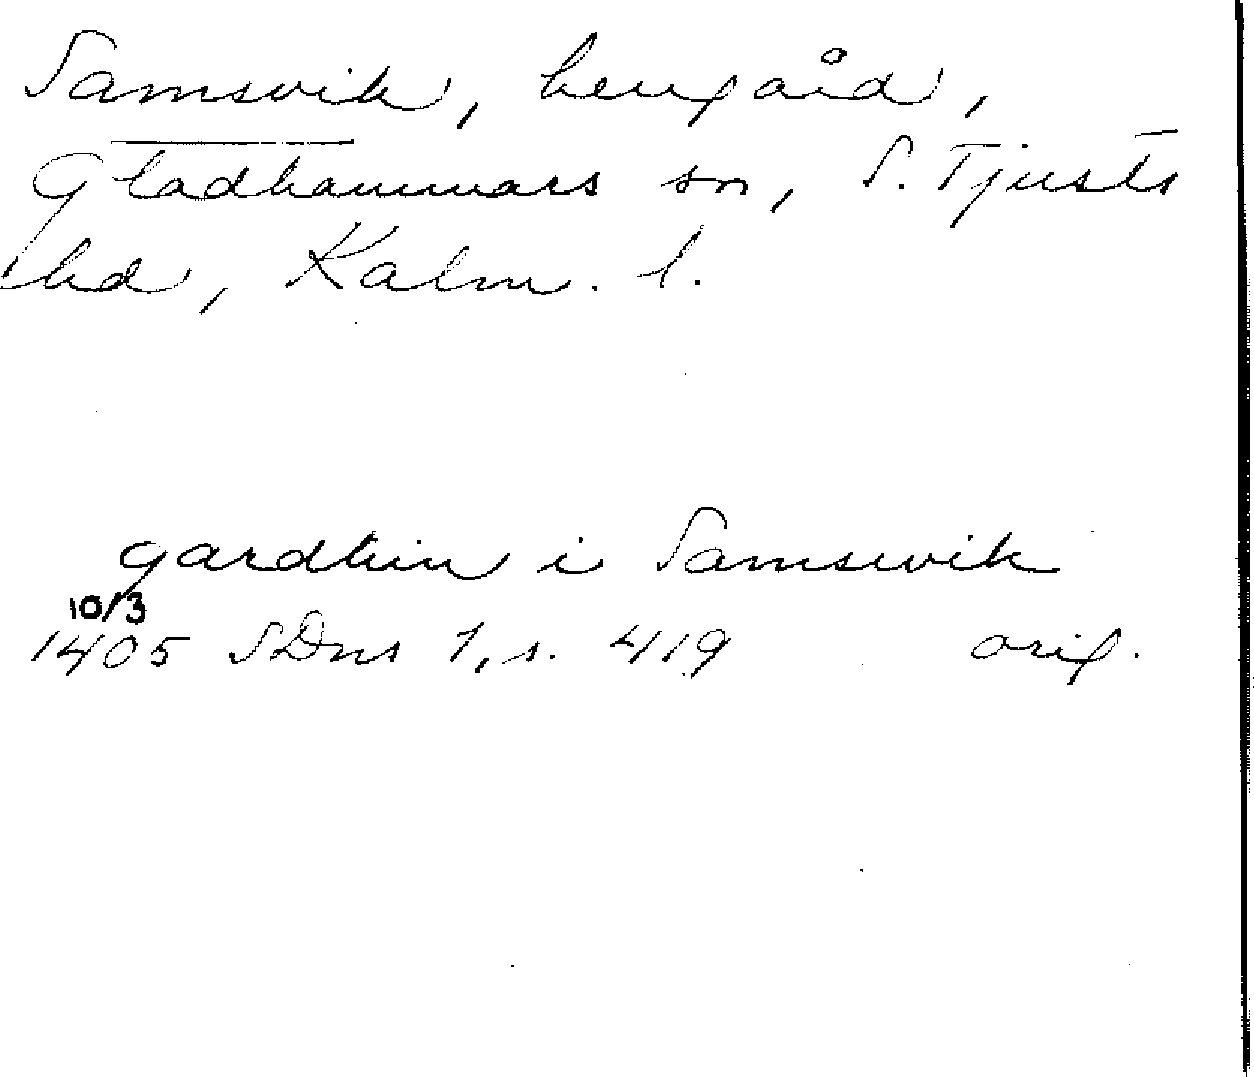 Samsvik, herrgård,
Gladhammars sn, S. Tjusts
hd, Kalm. l.
gardhin i Samswik
10/3
1405 SDns 1, s. 419 orig.